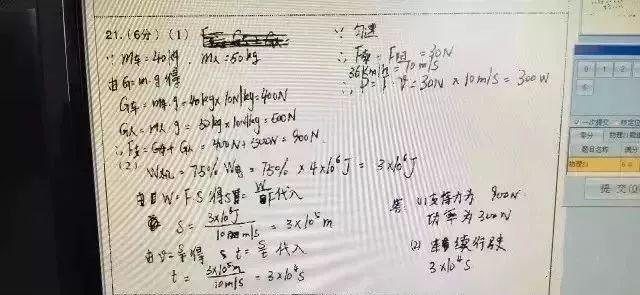 21.(6分)(1)
∵ m车=40kg , m人=50kg
由G=m·g得
G车=m车·g=40kg×10N/kg=400N
G人=m人·g=50kg×10N/kg=500N
∴F支=G车+G人=400N+500N=900N
(2)
W机=75% W电=75% × 4×10⁶J = 3×10⁶J
由 W=F·S 得S= 代入
S= 3×10⁶J = 3×10⁵m
由 得 t= 代入
t= 3×10⁵m / 10m/s = 3×10⁴s
∵ 匀速
∴ F牵=F阻=30N
36km/h=10m/s
∴ P=F·v=30N×10m/s=300W
答:(1)支持力为 900N
功率为300W
(2) 续行驶
3×10⁴s
一次提交
题目名称 满分
物理21
提交